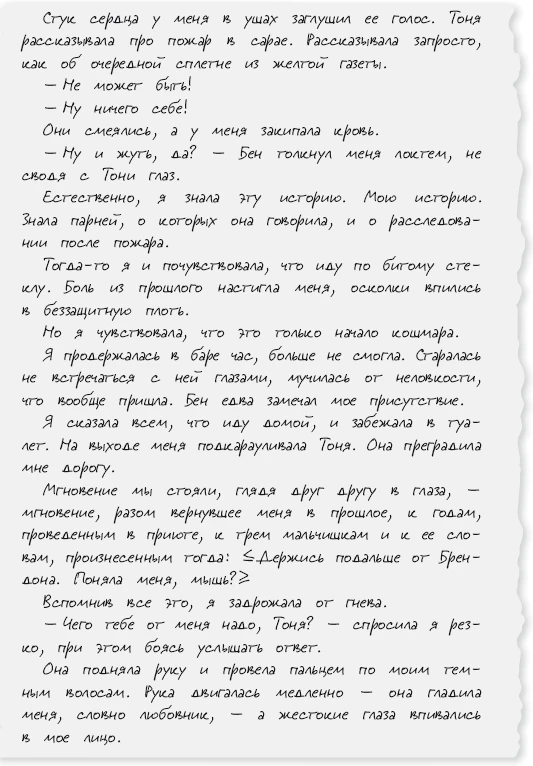 Стук сердца у меня в ушах заглушил ее голос. Тоня
рассказывала про пожар в сарае. Рассказывала запросто,
как об очередной сплетне из желтой газеты.
— Не может быть!
— Ну ничего себе!
Они смеялись, а у меня закипала кровь.
— Ну и жуть, да? — Бен толкнул меня локтем, не
сводя с Тони глаз.
Естественно, я знала эту историю. Мою историю.
Знала парней, о которых она говорила, и о расследова-
нии после пожара.
Тогда-то я и почувствовала, что иду по битому сте-
клу. Боль из прошлого настигла меня, осколки впились
в беззащитную плоть.
Но я чувствовала, что это только начало кошмара.
Я продержалась в баре час, больше не смогла. Старалась
не встречаться с ней глазами, мучилась от неловкости,
что вообще пришла. Бен едва замечал мое присутствие.
Я сказала всем, что иду домой, и забежала в туа-
лет. На выходе меня подкарауливала Тоня. Она преградила
мне дорогу.
Мгновение мы стояли, глядя друг другу в глаза, —
мгновение, разом вернувшее меня в прошлое, к годам,
проведенным в приюте, к трем мальчишкам и к ее сло-
вам, произнесенным тогда: ≤Держись подальше от Брен-
дона. Поняла меня, мышь?≥
Вспомнив все это, я задрожала от гнева.
— Чего тебе от меня надо, Тоня? — спросила я рез-
ко, при этом боясь услышать ответ.
Она подняла руку и провела пальцем по моим тем-
ным волосам. Рука двигалась медленно — она гладила
меня, словно любовник, — а жестокие глаза впивались
в мое лицо.